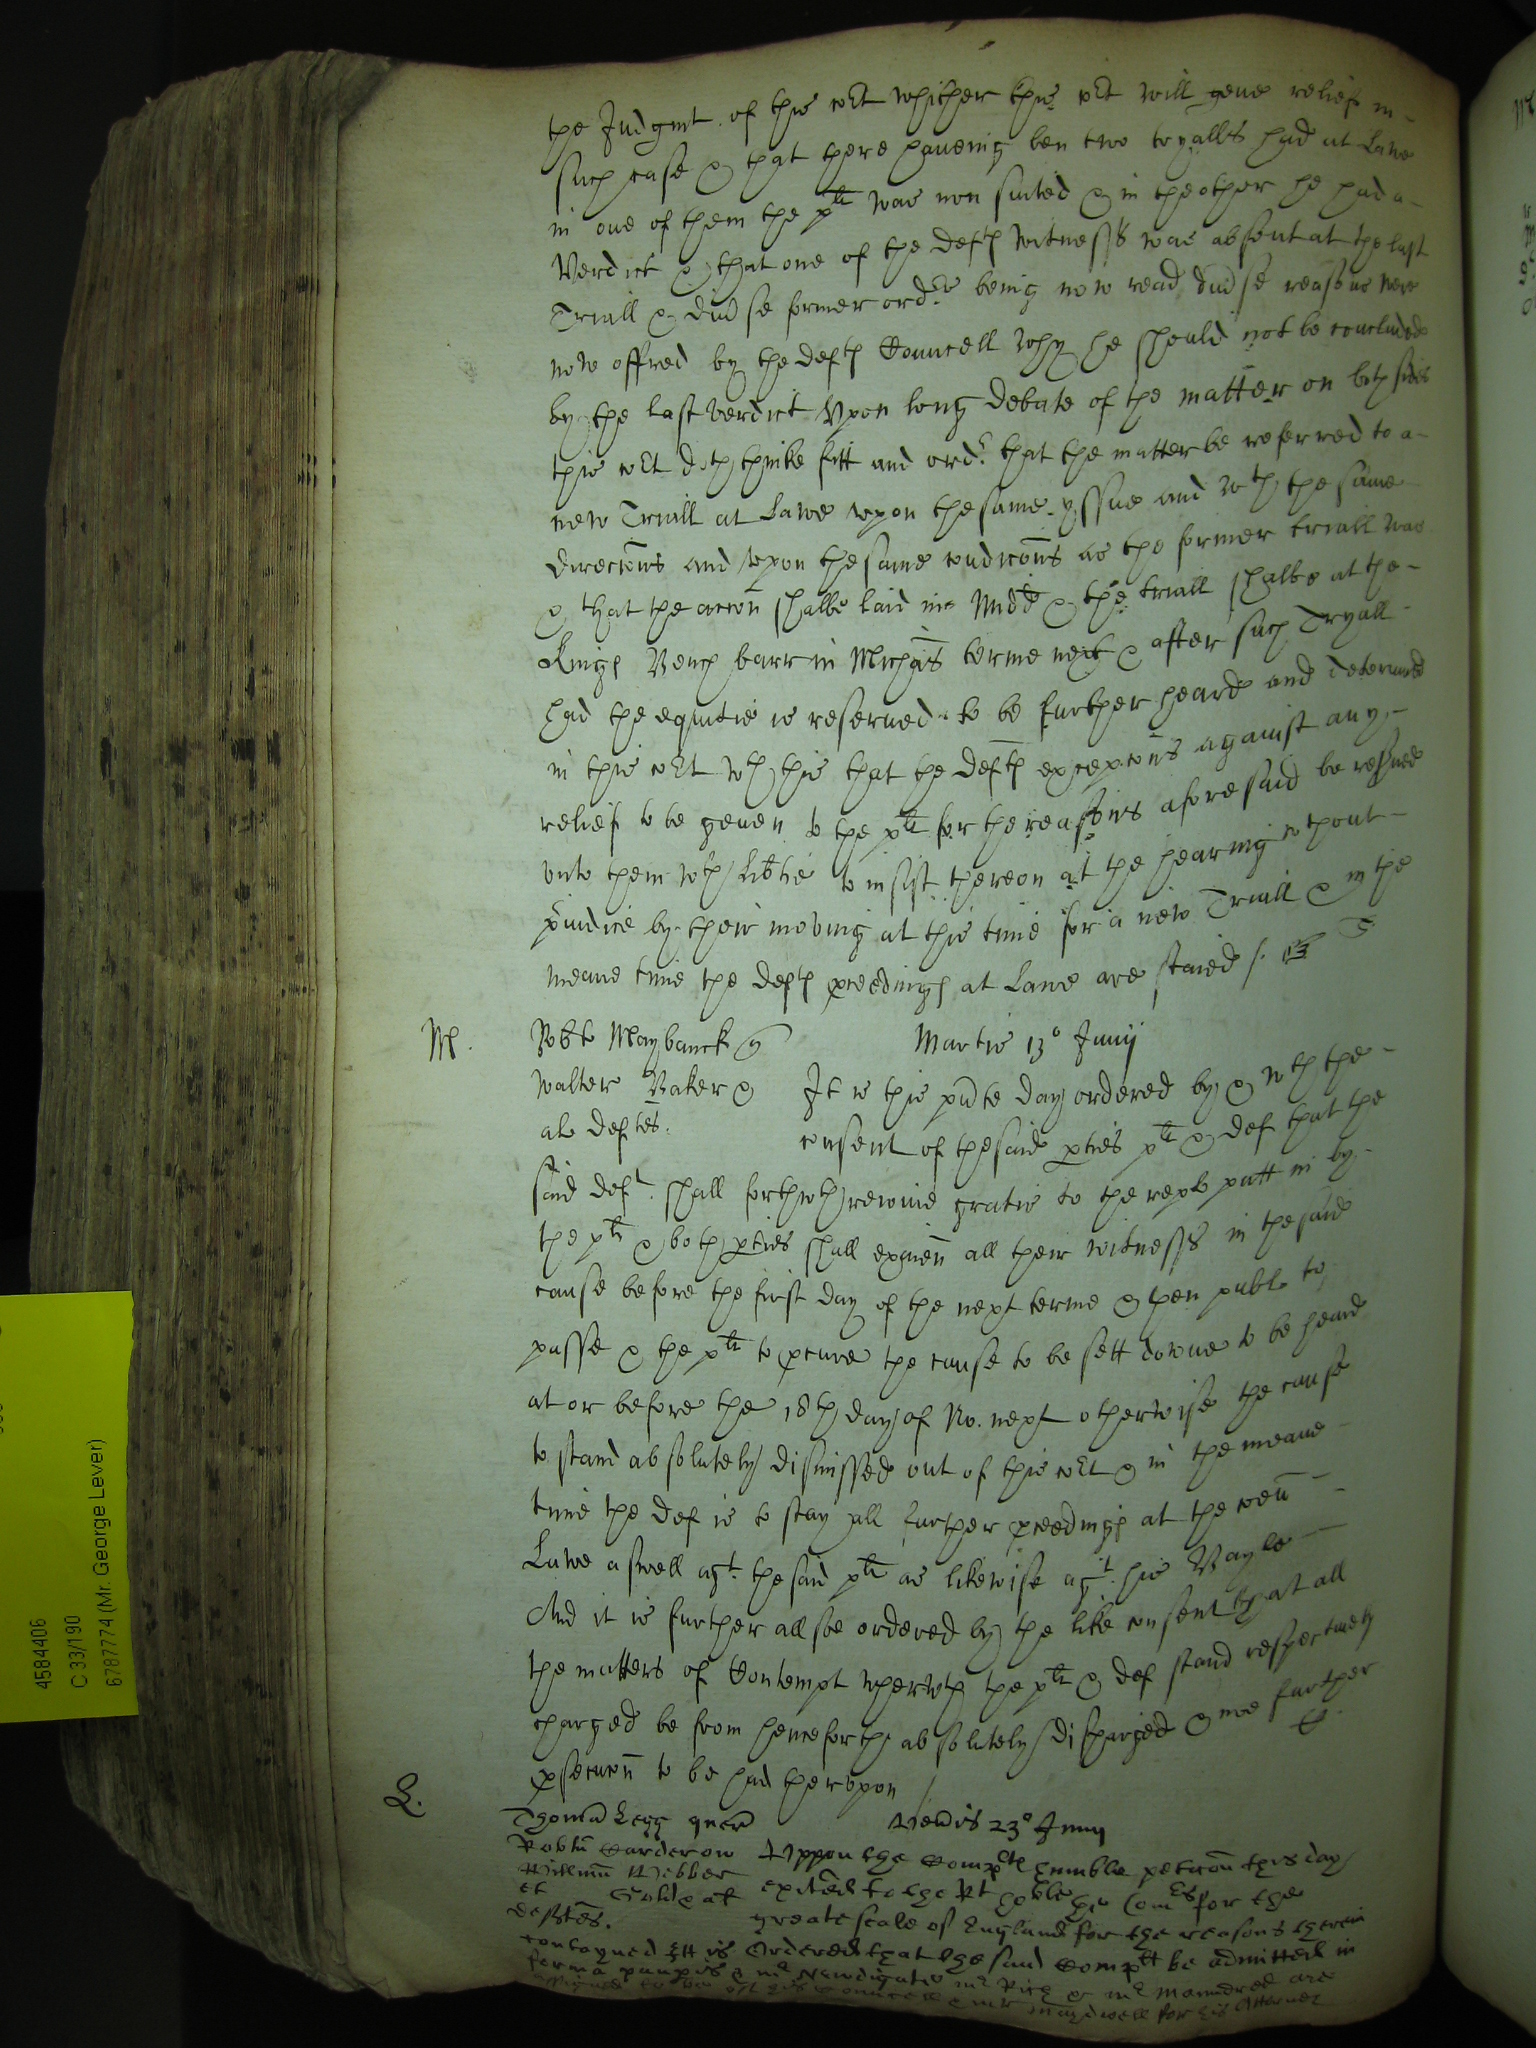 the Judgmt. of this cort whither this cort will geue relief in
such case & that there haueing ben two tryalls had at Lawe
in one of them the plt was non suited & in the other he had a
Verdict & that one of the defts witness's was absent at the last
Triall & diuerse former ordrs being now read diuerse reasons were
now offred by the defts Councell why he should not be concluded
by the last verdict Vpon long debate of the matter on both sides
this cort doth thinke fitt and ordr. that the matter be referred to a
new Triall at Lawe vpon the same yssue and wth the same
direccons and vpon the same condicons as the former triall was
& that the accon shalbe laid in Midd & the triall shalbe at the
Kings Bench barr in Michas terme next & after such Tryall
had the equitie is reserued to be further heard and determined
in this cort wth this that the defts excepcons against any
relief to be geuen to the plt for the reasons aforesaid be reserued
vnto them wth libtie to insist thereon at the hearing wthout
piudice by their moving at this time for a new Triall & in the
meane time the defts pceedings at Lawe are staied /.
M.
Robto Maybanck q
Martis 13o Junij
Walter Baker &
It is this pnte day ordered by & wth the
al deftes.
consent of the said pties plt & def that the
said deft. shall forthwth reioine gratis to the repl putt in by
the plt & both pties shall examen all their witness's in the said
cause before the first day of the next terme & then publ to
passe & the plt to pcure the cause to be sett downe to be heard
at or before the 18th day of No. next otherwise the cause
to stand absolutely dismissed out of this cort & in the meane
time the def is to stay all further pceedings at the coen
Lawe aswell agt. the said plt as likewise agt. his Bayle
And it is further allsoe ordered by the like consent that all
the matters of Contempt wherwth the plt & def stand respectiuely
charged be from henceforth absolutely discharged & noe further
psecucon to be had thervpon /
L.
Thoma Legg quer
Veneris 23o Juny
Robtu Carderow
Vppon the Complts humble peticon this day
Willimu Webber
et
exhited to the Rt hoble the Comrs for the
deftes.
greate seale of England for the reasons therein
contayned Itt is Ordered that the said Complt be admitted in
forma paupis & mr Newdigate mr Rich & mr Maundred are
assigned to be of his Councell & mr Maydwell for his Attorney
4584406
C 33/190
6787774 (Mr. George Lever)